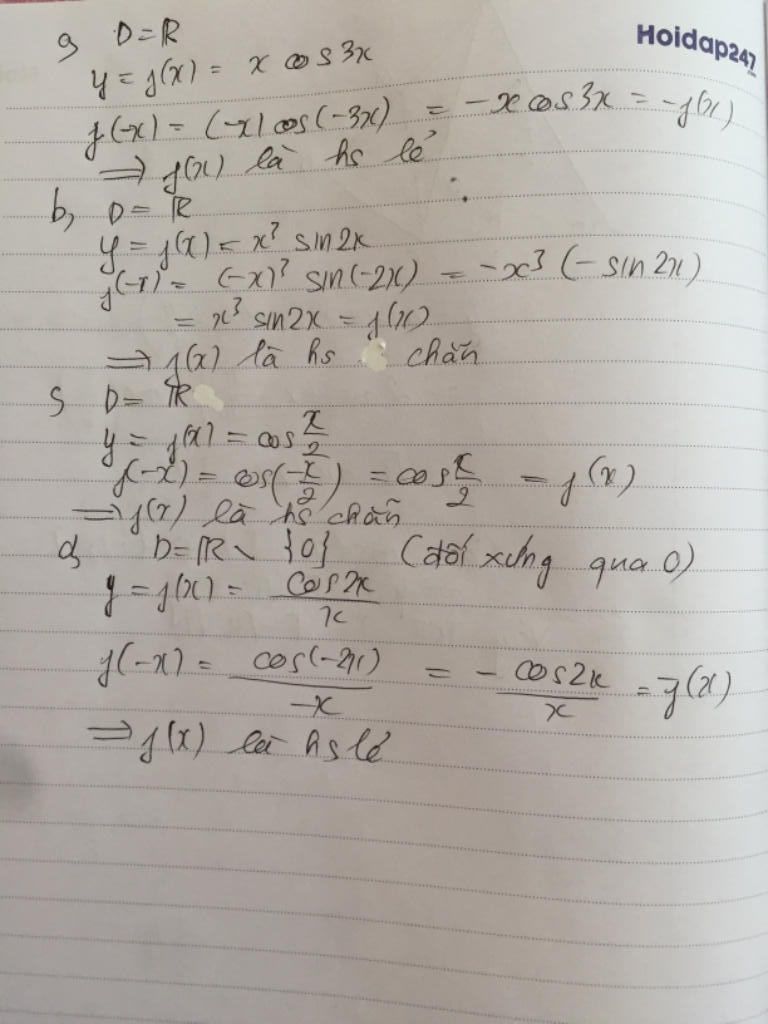 Hoidap247
a, D = R
y = f(x) = x cos3x
f(-x) = (-x) cos(-3x) = -x cos3x = -f(x)
⟹ f(x) là hs lẻ
b, D = R
y = f(x) = x³ sin2x
f(-x) = (-x)³ sin(-2x) = -x³ (-sin2x)
= x³ sin2x = f(x)
⟹ f(x) là hs chẵn
c, D = R
y = f(x) = cos x/2
f(-x) = cos(-x/2) = cos x/2 = f(x)
⟹ f(x) là hs chẵn
d, D = R \ {0} (đối xứng qua 0)
y = f(x) = cos2x/x
f(-x) = cos(-2x)/-x = - cos2x/x = -f(x)
⟹ f(x) là hs lẻ